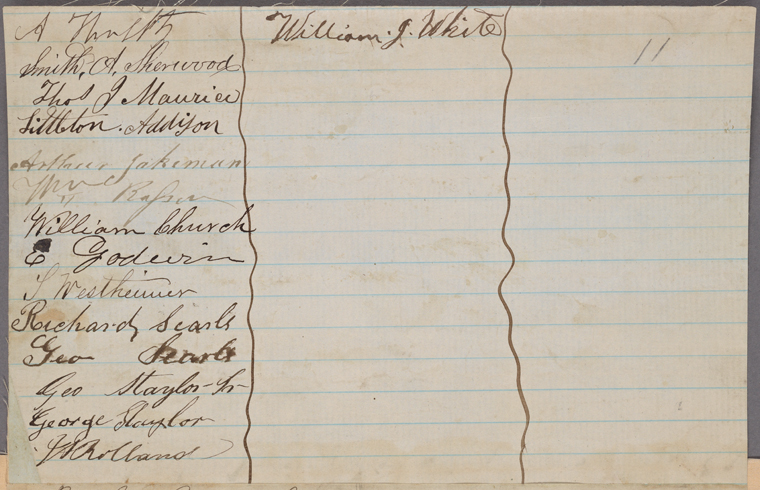 A
Smith, A, Sherwood
Thos J Maurice
Littleton. Addison
Arthur Jakeman
William Church
E Godwin
S Westheimer
Richard Searls
Geo Searls
Geo Staylor Sr
George Staylor
Rolland
William. J. White
11